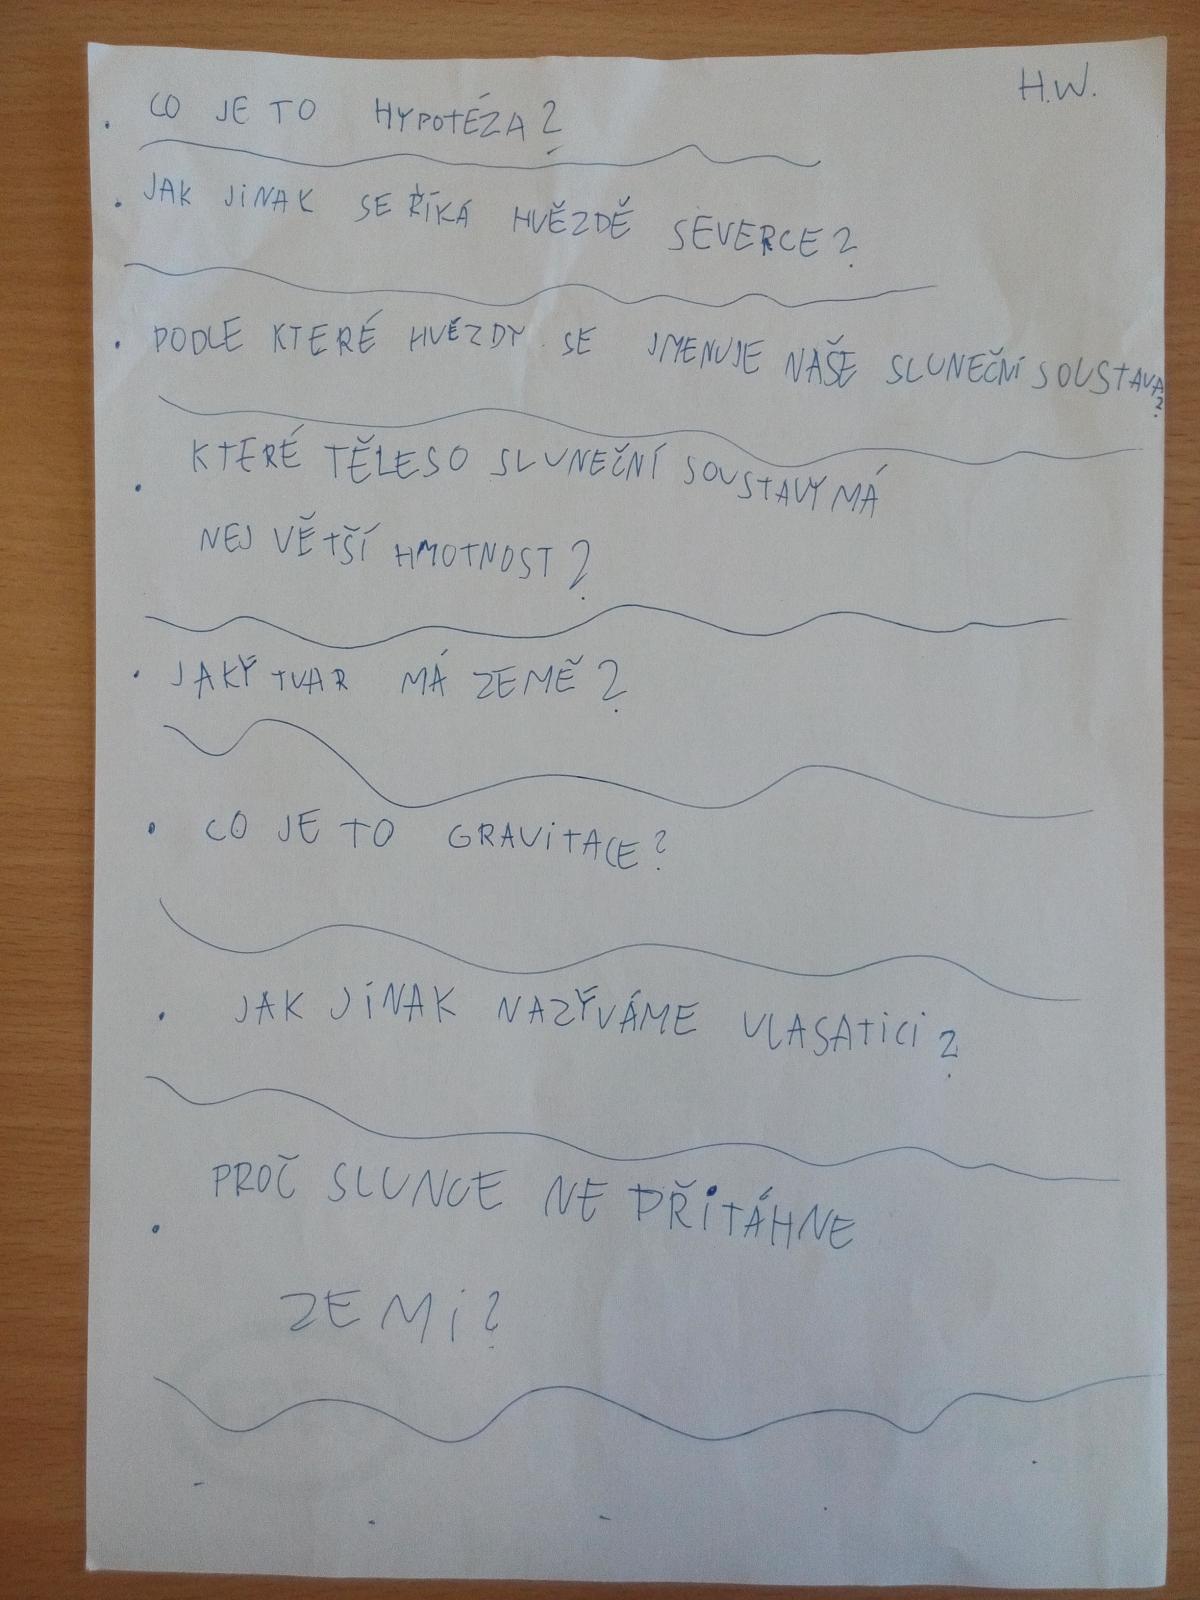 H.W.
. CO JE TO HYPOTÉZA?
. JAK JINAK SE ŘÍKÁ HVĚZDĚ SEVERCE?
. PODLE KTERÉ HVĚZDY SE JMENUJE NAŠE SLUNEČNÍ SOUSTAVA?
. KTERÉ TĚLESO SLUNEČNÍ SOUSTAVY MÁ
NEJ VĚTŠÍ HMOTNOST?
. JAKÝ TVAR MÁ ZEMĚ?
. CO JE TO GRAVITACE?
. JAK JÍNAK NAZÝVÁME VLASATICI?
. PROČ SLUNCE NE PŘITÁHNE
ZEMI?